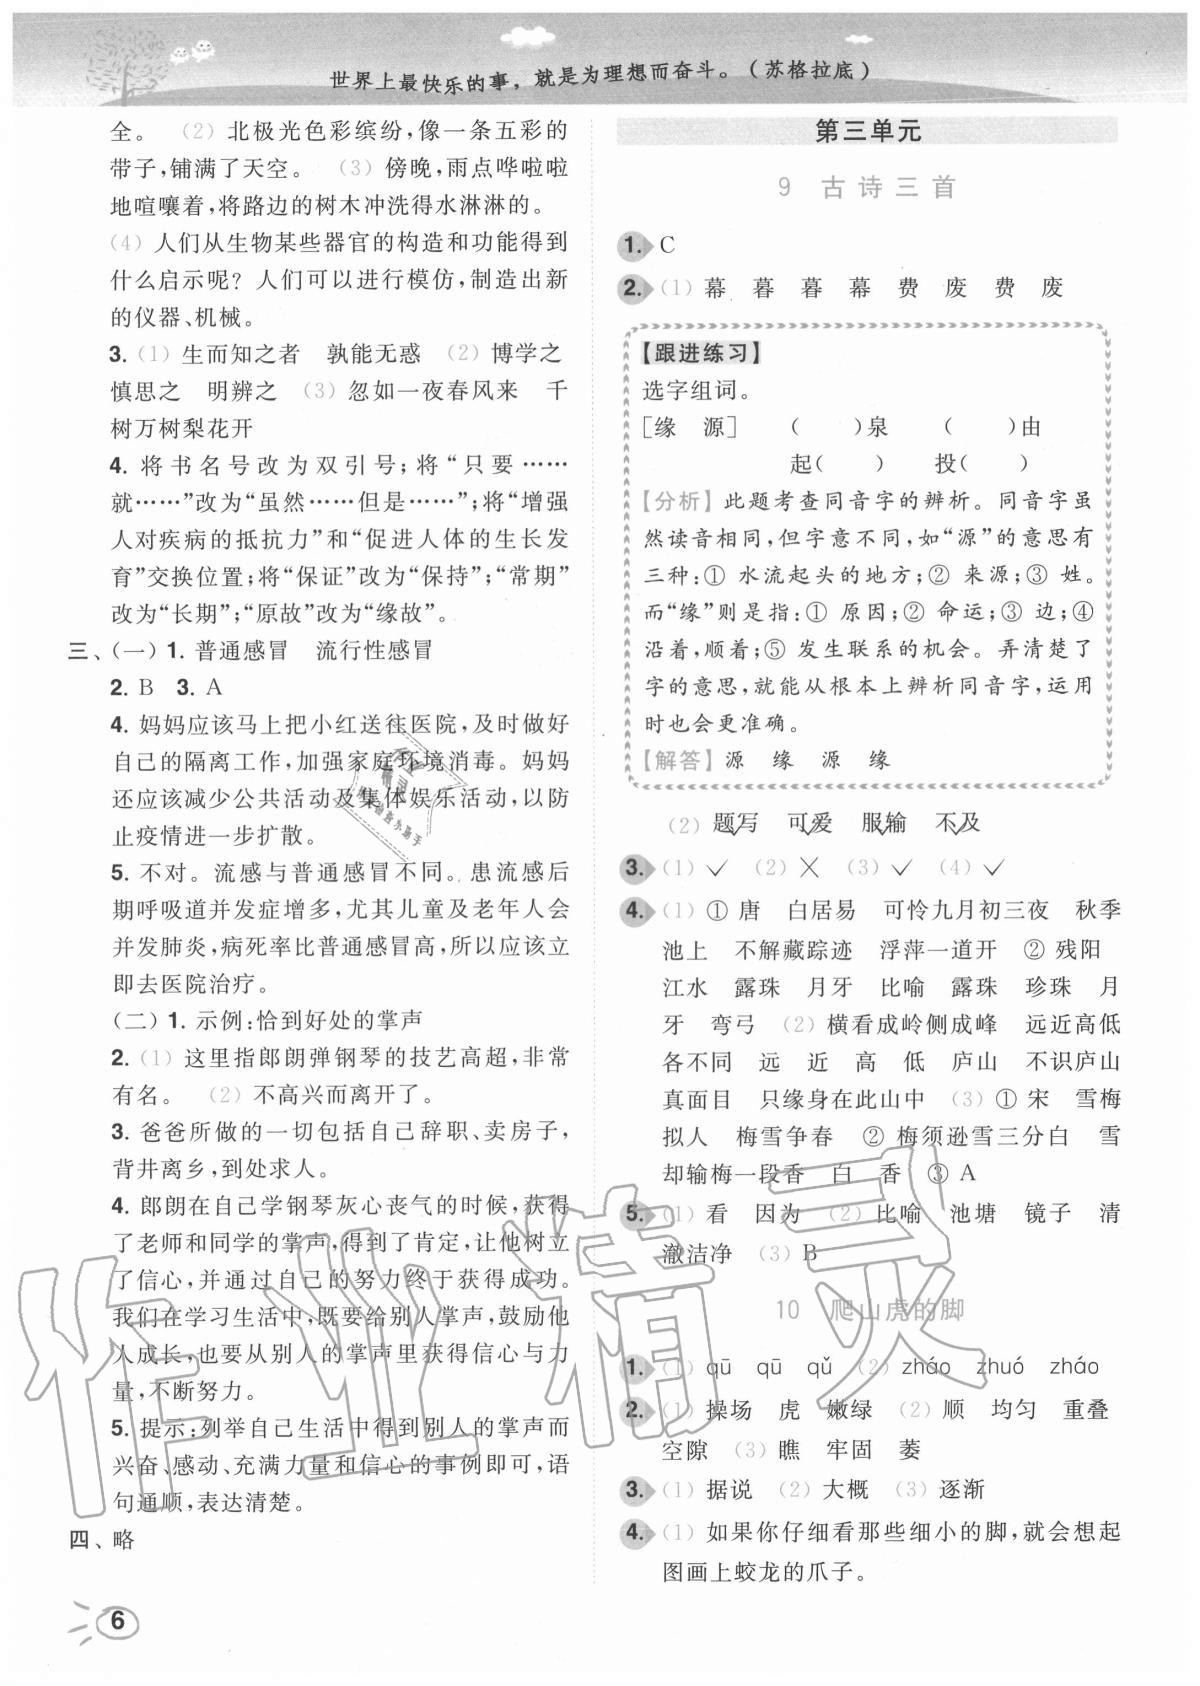 世界上最快乐的事，就是为理想而奋斗。（苏格拉底）
全。 （2）北极光色彩缤纷，像一条五彩的
带子，铺满了天空。 （3）傍晚，雨点哗啦啦
地喧嚷着，将路边的树木冲洗得水淋淋的。
（4）人们从生物某些器官的构造和功能得到
什么启示呢？人们可以进行模仿，制造出新
的仪器、机械。
3.（1）生而知之者 孰能无惑 （2）博学之
慎思之 明辨之 （3）忽如一夜春风来 千
树万树梨花开
4. 将书名号改为双引号；将“只要……
就……”改为“虽然……但是……”；将“增强
人对疾病的抵抗力”和“促进人体的生长发
育”交换位置；将“保证”改为“保持”；“常期”
改为“长期”；“原故”改为“缘故”。
三、（一）1. 普通感冒 流行性感冒
2. B 3. A
4. 妈妈应该马上把小红送往医院，及时做好
自己的隔离工作，加强家庭环境消毒。妈妈
还应该减少公共活动及集体娱乐活动，以防
止疫情进一步扩散。
5. 不对。流感与普通感冒不同。患流感后
期呼吸道并发症增多，尤其儿童及老年人会
并发肺炎，病死率比普通感冒高，所以应该立
即去医院治疗。
（二）1. 示例：恰到好处的掌声
2.（1）这里指郎朗弹钢琴的技艺高超，非常
有名。 （2）不高兴而离开了。
3. 爸爸所做的一切包括自己辞职、卖房子，
背井离乡，到处求人。
4. 郎朗在自己学钢琴灰心丧气的时候，获得
了老师和同学的掌声，得到了肯定，让他树立
了信心，并通过自己的努力终于获得成功。
我们在学习生活中，既要给别人掌声，鼓励他
人成长，也要从别人的掌声里获得信心与力
量，不断努力。
5. 提示：列举自己生活中得到别人的掌声而
兴奋、感动、充满力量和信心的事例即可，语
句通顺，表达清楚。
四、略
6
第三单元
9 古诗三首
1. C
2.（1）幕 暮 暮 幕 费 废 费 废
【跟进练习】
选字组词。
［缘 源］ （ ）泉 （ ）由
起（ ） 投（ ）
【分析】此题考查同音字的辨析。同音字虽
然读音相同，但字意不同，如“源”的意思有
三种：① 水流起头的地方；② 来源；③ 姓。
而“缘”则是指：① 原因；② 命运；③ 边；④
沿着，顺着；⑤ 发生联系的机会。弄清楚了
字的意思，就能从根本上辨析同音字，运用
时也会更准确。
【解答】源 缘 源 缘
（2）题写 可爱 服输 不及
3.（1）✓ （2）✕ （3）✓ （4）✓
4.（1）① 唐 白居易 可怜九月初三夜 秋季
池上 不解藏踪迹 浮萍一道开 ② 残阳
江水 露珠 月牙 比喻 露珠 珍珠 月
牙 弯弓 （2）横看成岭侧成峰 远近高低
各不同 远 近 高 低 庐山 不识庐山
真面目 只缘身在此山中 （3）① 宋 雪梅
拟人 梅雪争春 ② 梅须逊雪三分白 雪
却输梅一段香 白 香 ③ A
5.（1）看 因为 （2）比喻 池塘 镜子 清
澈洁净 （3）B
10 爬山虎的脚
1.（1）qū qū qǔ （2）zháo zhuó zháo
2.（1）操场 虎 嫩绿 （2）顺 均匀 重叠
空隙 （3）瞧 牢固 萎
3.（1）据说 （2）大概 （3）逐渐
4.（1）如果你仔细看那些细小的脚，就会想起
图画上蛟龙的爪子。
作业精灵